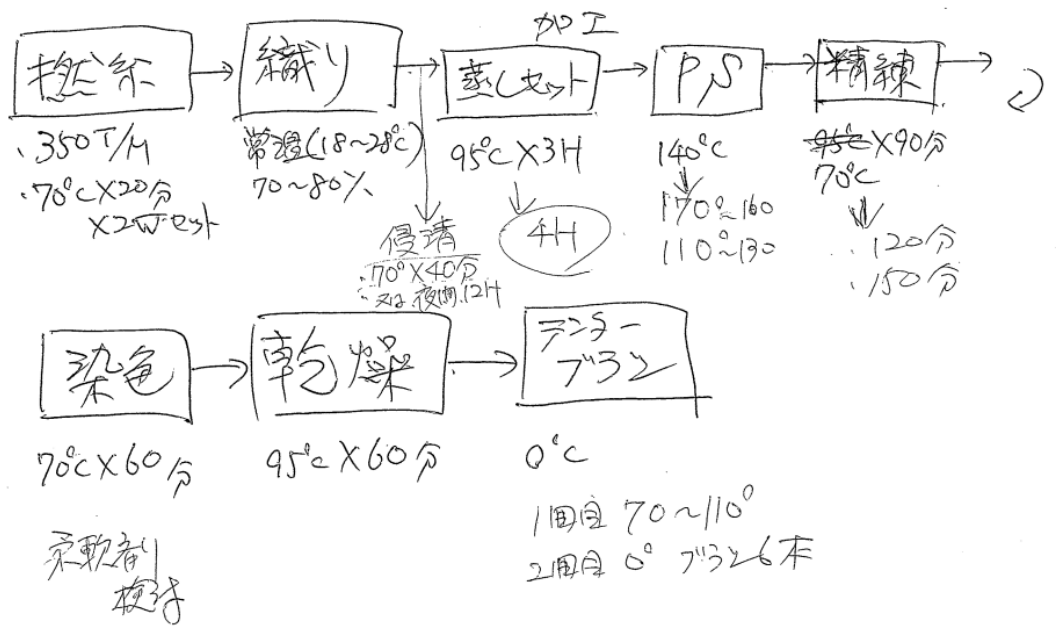 加工
撚糸 → 織り → 蒸しセット → P,S → 精練 →
・350T/M
・70℃×20分
×2Wセット
常温(18~28℃)
70~80%
浸漬
・70°×40分
・又は、夜間、12H
95℃×3H
4H
140℃
170°~160
110°~130
95℃×90分
70℃
・120分
・150分
染色 → 乾燥 → テンター
ブラシ
70℃×60分
95℃×60分
0℃
1回目 70~110°
2回目 0° ブラシ6本
柔軟有り
検討